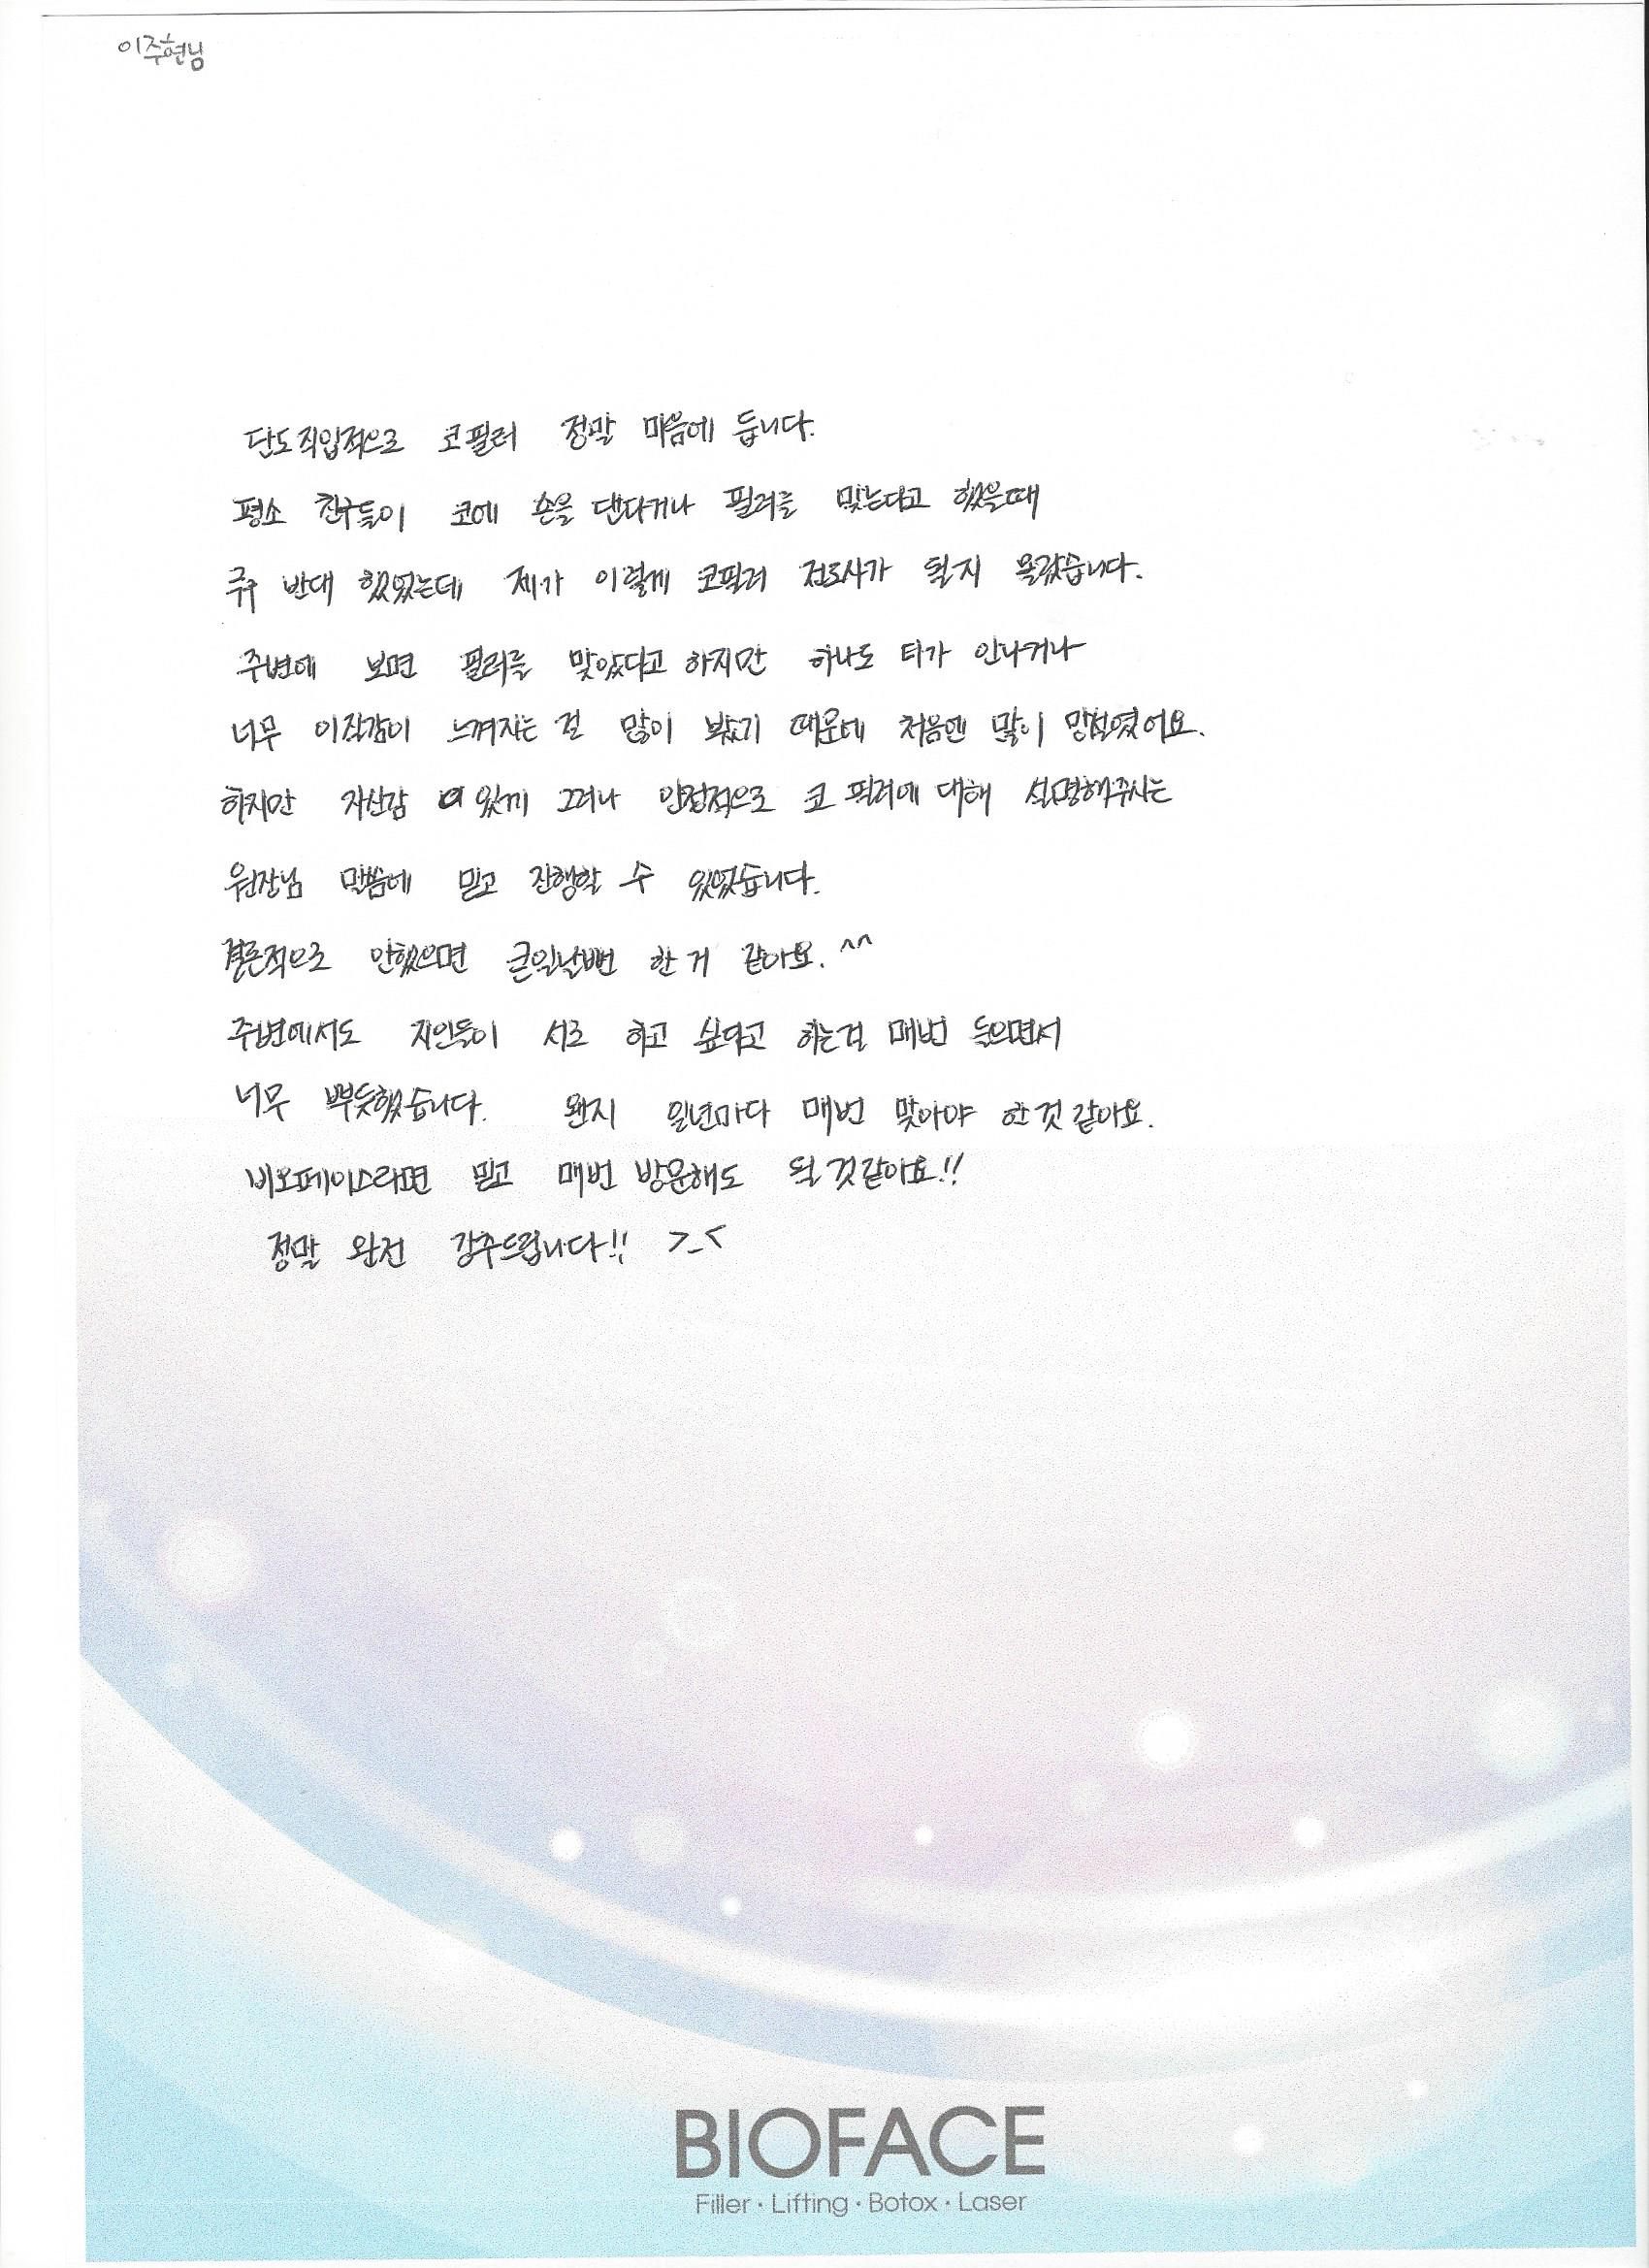 이주현님
단도직입적으로 코필러 정말 마음에 듭니다.
평소 친구들이 코에 손을 댄다거나 필러를 맞는다고 했을때
극구 반대 했었는데 제가 이렇게 코필러 전도사가 될지 몰랐습니다.
주변에 보면 필러를 맞았다고 하지만 하나도 티가 안나거나
너무 이질감이 느껴지는 걸 많이 봤기 때문에 처음엔 많이 망설였어요.
하지만 자신감 있게 그러나 안정적으로 코 필러에 대해 설명해주시는
원장님 말씀에 믿고 진행할 수 있었습니다.
결론적으로 안했으면 큰일날뻔 한 거 같아요. ^^
주변에서도 지인들이 서로 하고 싶다고 하는걸 매번 들으면서
너무 뿌듯했습니다. 왠지 일년마다 매번 맞아야 한 것 같아요.
비오페이스라면 믿고 매번 방문해도 될 것 같아요!!
정말 완전 강추드립니다!! >_<
BIOFACE
Filler · Lifting · Botox · Laser